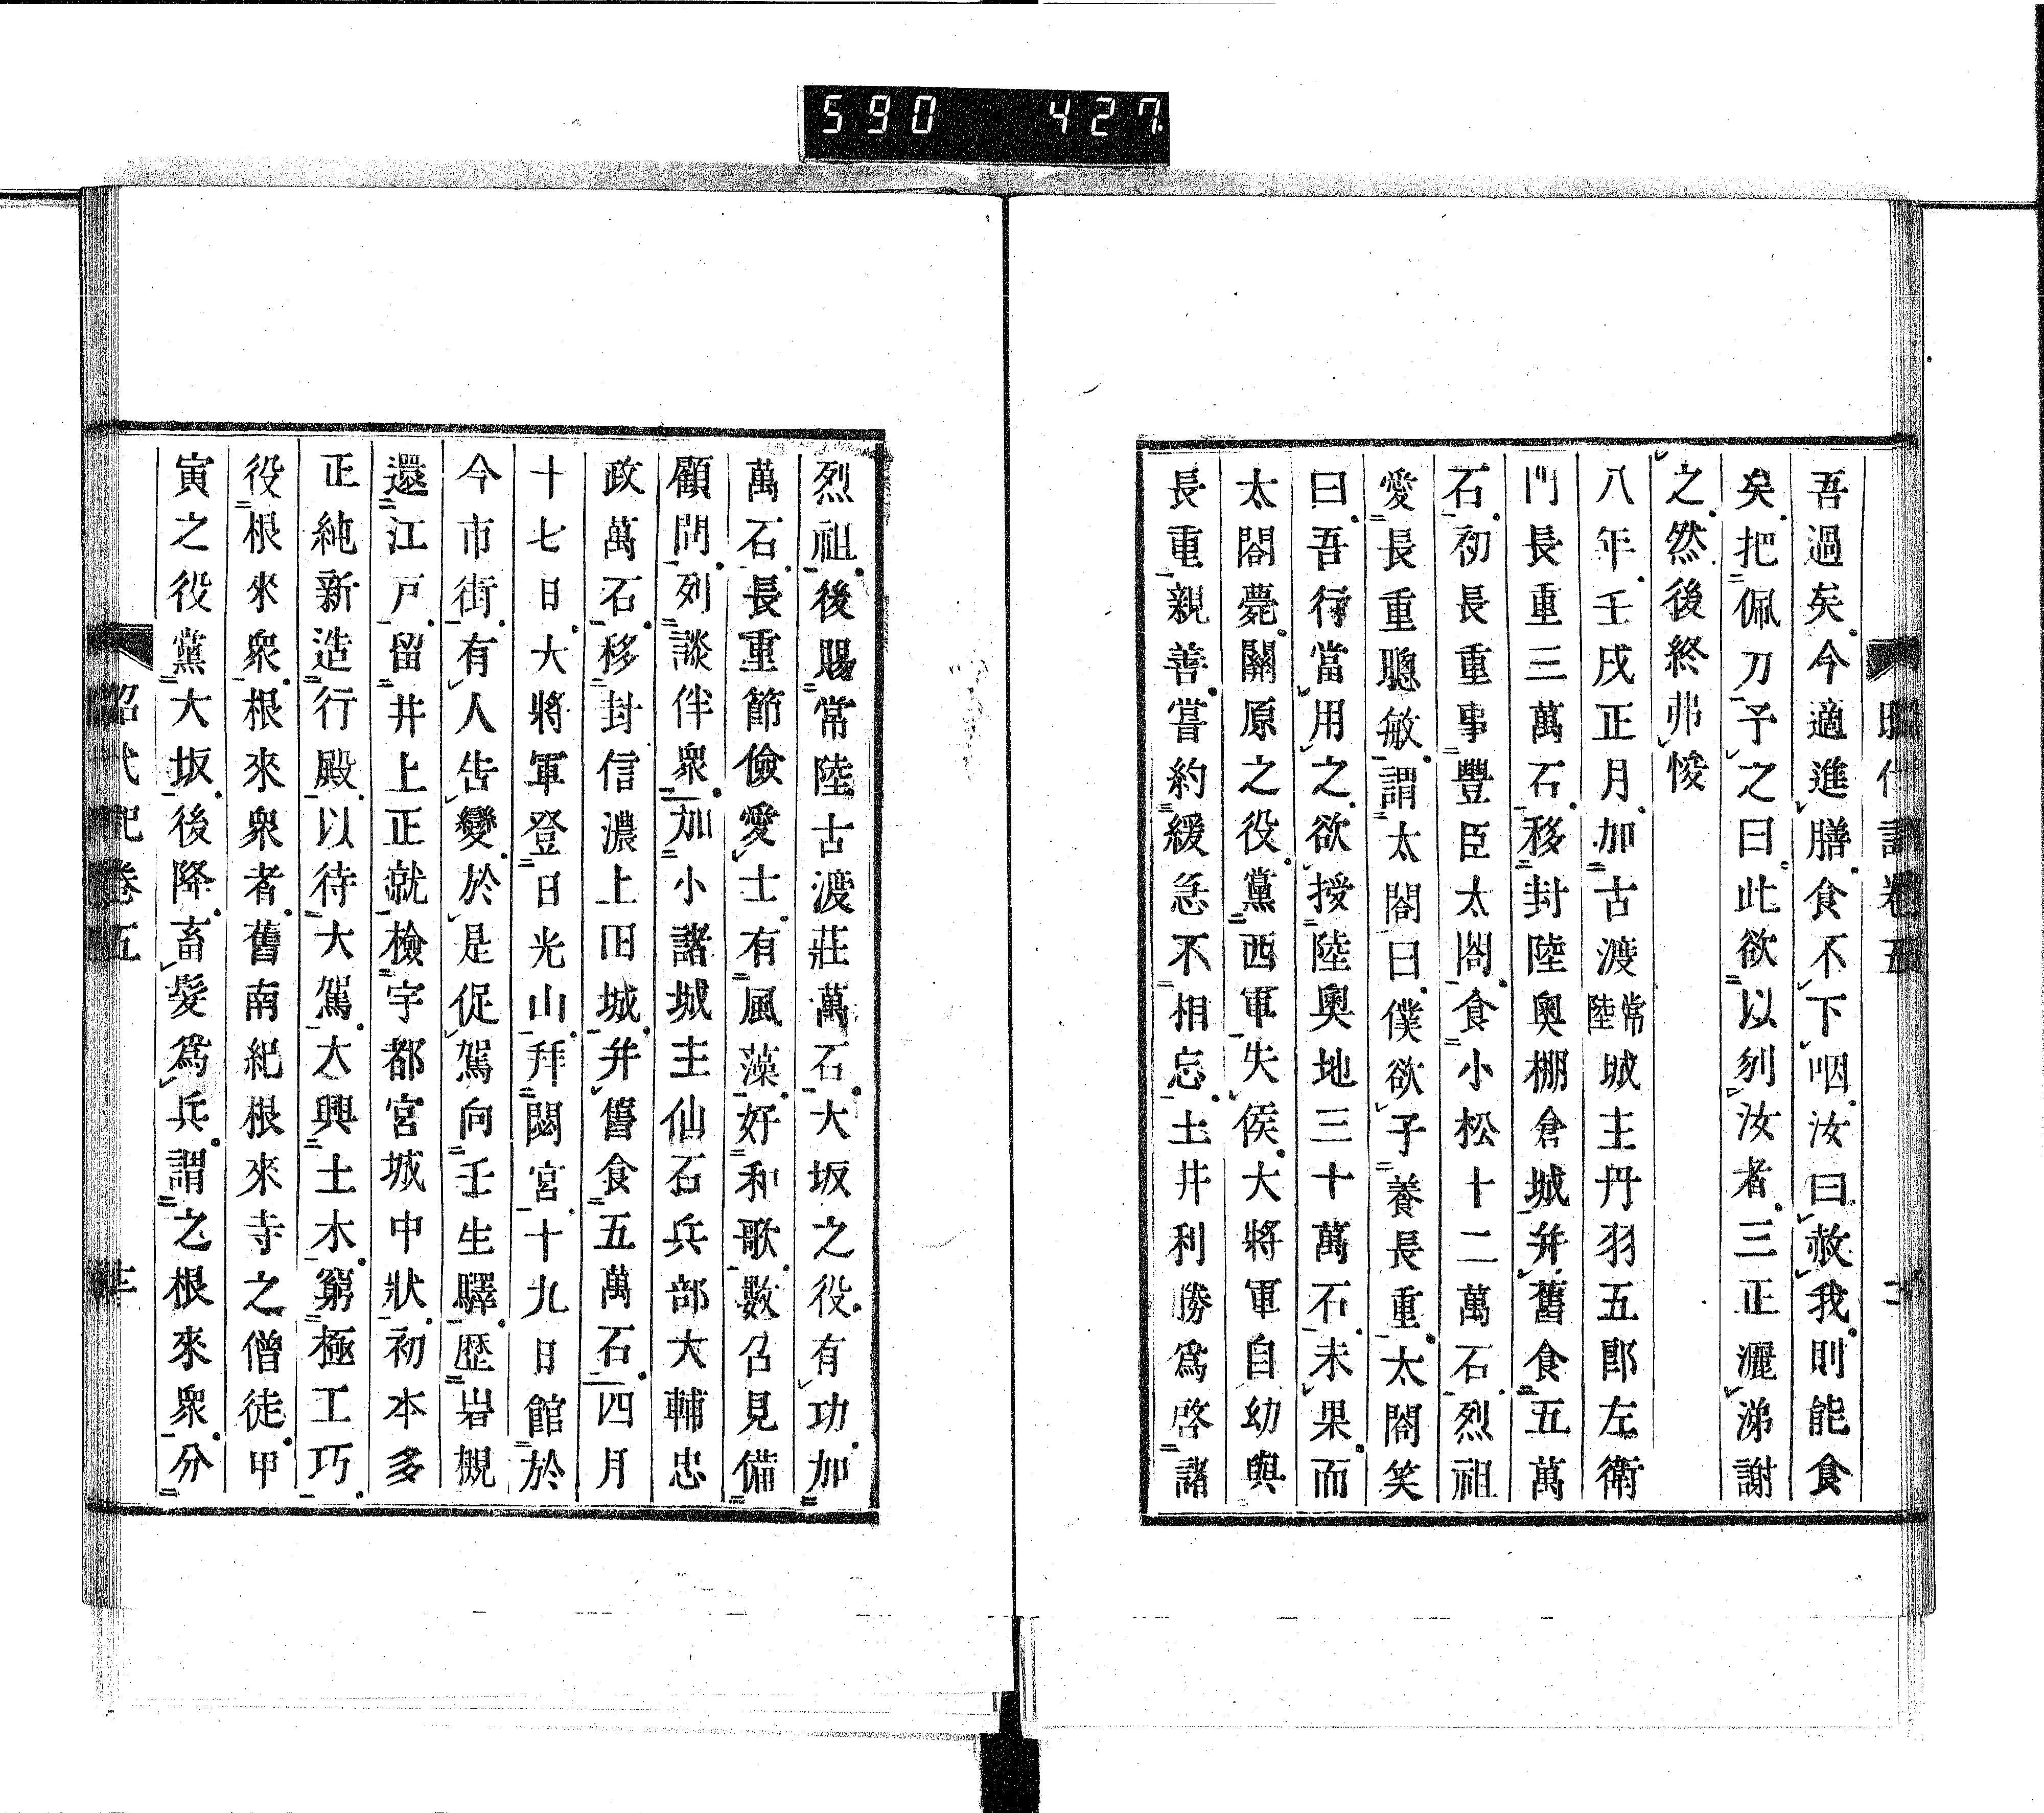 590 427
吾過矣今適進膳食不下咽汝曰赦我則能食
矣把佩刀予之曰此欲以刎汝者三正灑涕謝
之然後終弗悛
八年壬戌正月加古渡常陸城主丹羽五郎左衛
門長重三萬石移封陸奥棚倉城并舊食五萬
石初長重事豐臣太閤食小松十二萬石烈祖
愛長重聰敏謂太閤曰僕欲子養長重太閤笑
曰吾行當用之欲授陸奥地三十萬石未果而
太閤薨關原之役黨西軍失侯大將軍自幼與
長重親善嘗約緩急不相忘土井利勝爲啓諸
烈祖後賜常陸古渡莊萬石大坂之役有功加
萬石長重節儉愛士有風藻好和歌數召見備
顧問列談伴衆加小諸城主仙石兵部大輔忠
政萬石移封信濃上田城并舊食五萬石四月
十七日大將軍登日光山拜閟宮十九日館於
今市街有人告變於是促駕向壬生驛歷岩槻
還江戸留井上正就檢宇都宮城中狀初本多
正純新造行殿以待大駕大興土木窮極工巧
役根來衆根來衆者舊南紀根來寺之僧徒甲
寅之役黨大坂後降畜髮爲兵謂之根來衆分
昭代記卷五